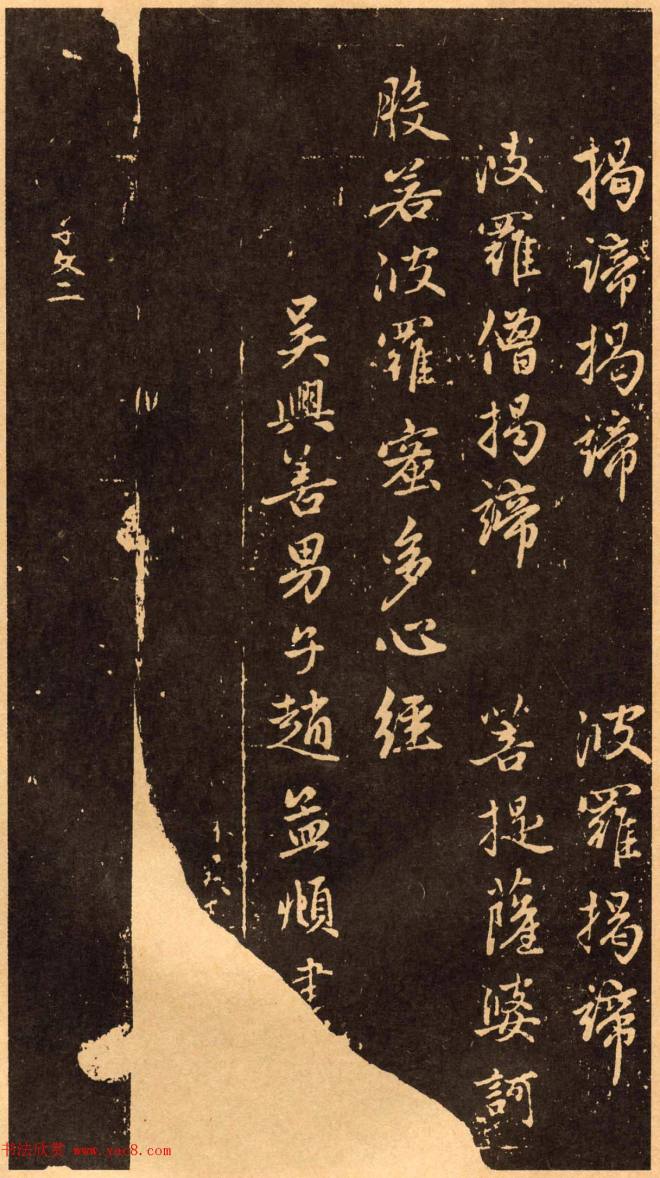 揭諦揭諦 波羅揭諦
波羅僧揭諦 菩提薩婆訶
般若波羅蜜多心經
吳興善男子趙孟頫書
书法欣赏 www.yac8.com